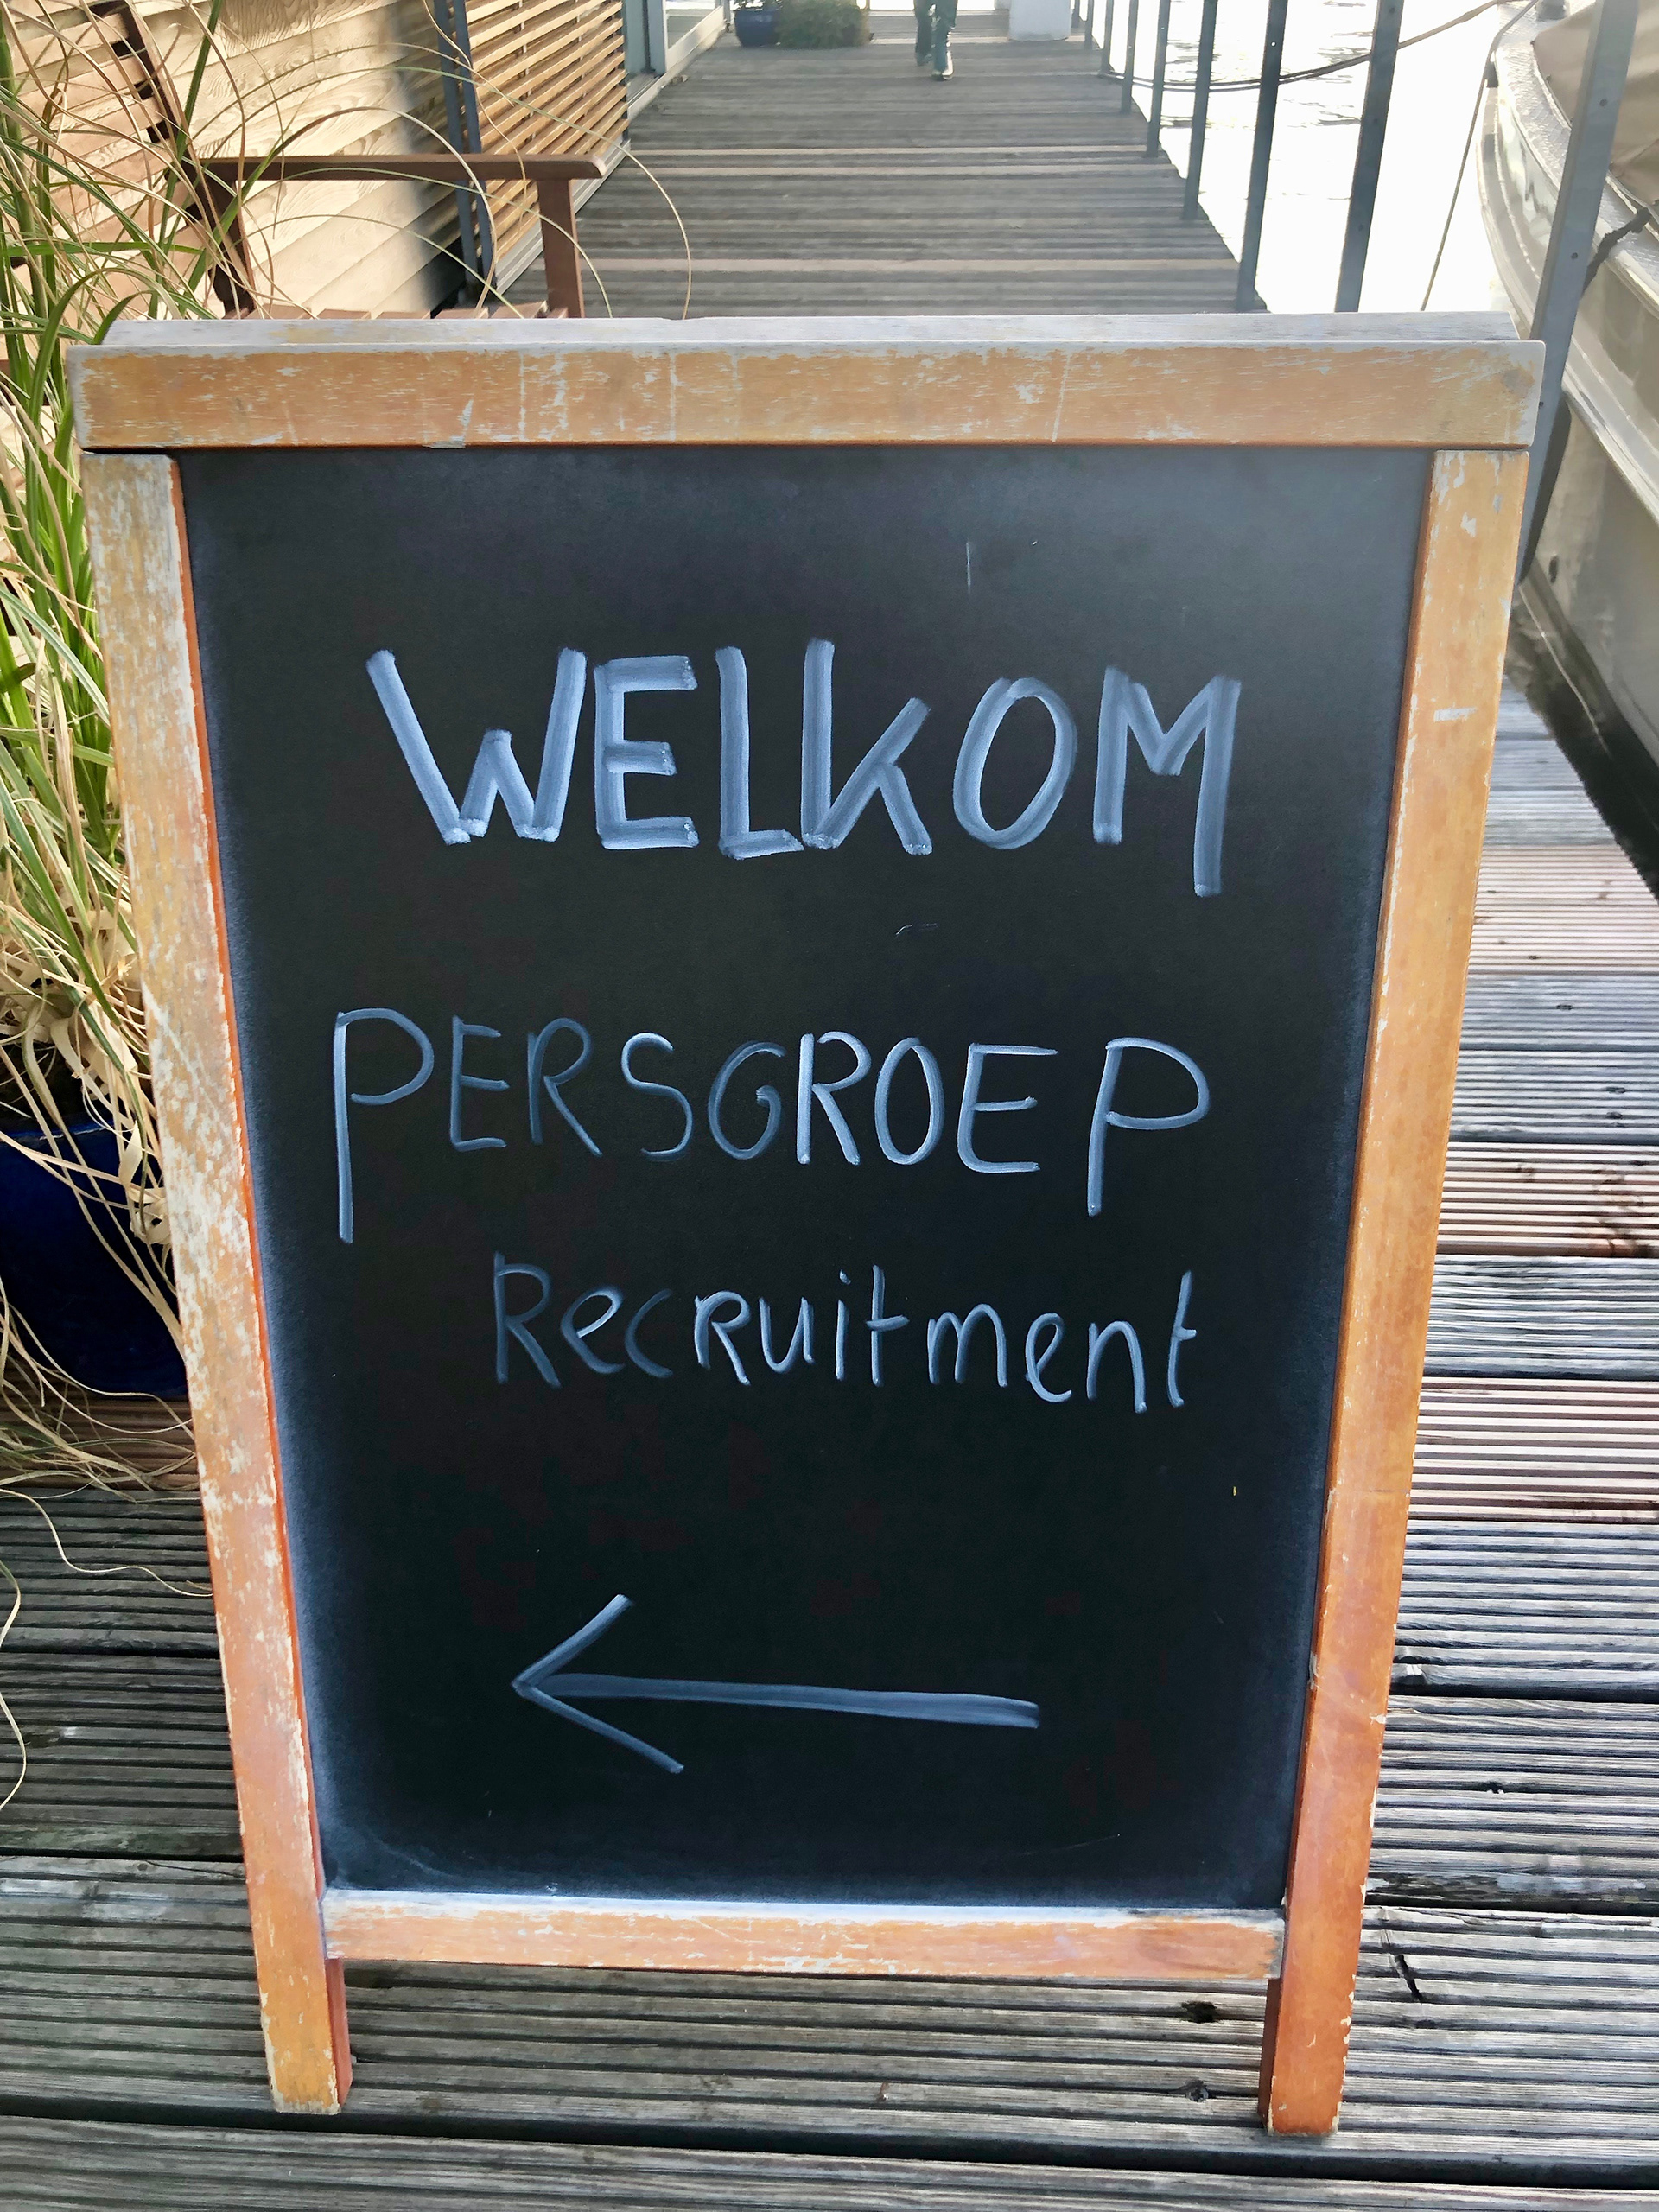 WELKOM
PERSGROEP
Recruitment